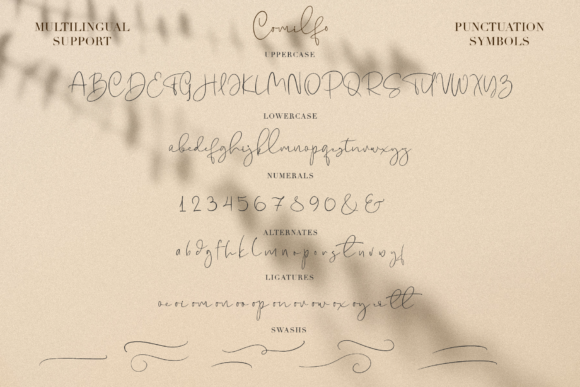 MULTILINGUAL
SUPPORT
Comilfo
PUNCTUATION
SYMBOLS
UPPERCASE
ABCDEFGHIJKLMNOPQRSTUVWXYZ
LOWERCASE
abcdefghijklmnopqrstuvwxyz
NUMERALS
1234567890&&
ALTERNATES
LIGATURES
SWASHS